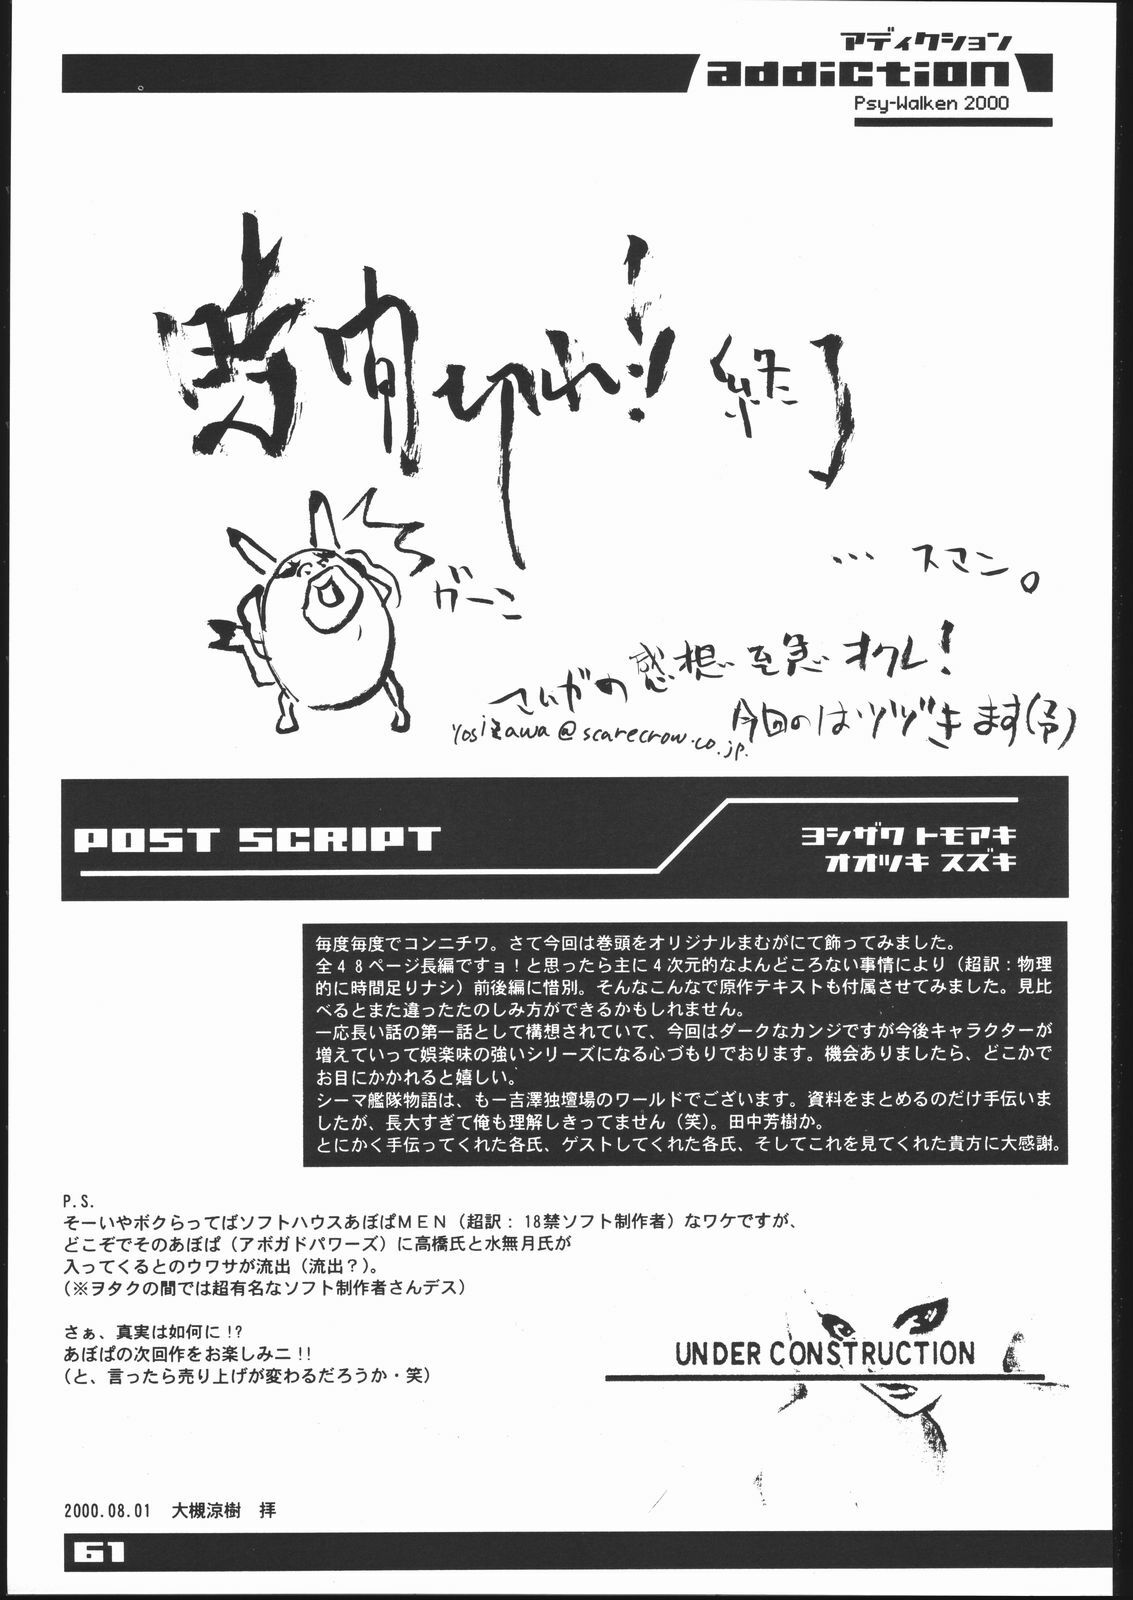 アディクション
addiction
Psy-Walken 2000
時間切れ! 終了
ガーン
… スマン。
感想 至急 オクレ!
yosizawa@scarecrow.co.jp.
今回のはツヅきます(予)
POST SCRIPT
ヨシザワ トモアキ
オオツキ スズキ
毎度毎度でコンニチワ。さて今回は巻頭をオリジナルまむがにて飾ってみました。
全48ページ長編ですョ!と思ったら主に4次元的なよんどころない事情により(超訳:物理
的に時間足りナシ)前後編に惜別。そんなこんなで原作テキストも付属させてみました。見比
べるとまた違ったたのしみ方ができるかもしれません。
一応長い話の第一話として構想されていて、今回はダークなカンジですが今後キャラクターが
増えていって娯楽味の強いシリーズになる心づもりでおります。機会ありましたら、どこかで
お目にかかれると嬉しい。
シーマ艦隊物語は、も一吉澤独壇場のワールドでございます。資料をまとめるのだけ手伝いま
したが、長大すぎて俺も理解しきってません(笑)。田中芳樹か。
とにかく手伝ってくれた各氏、ゲストしてくれた各氏、そしてこれを見てくれた貴方に大感謝。
P.S.
そーいやボクらってばソフトハウスあぼぱMEN(超訳:18禁ソフト制作者)なワケですが、
どこぞでそのあぼぱ(アボガドパワーズ)に高橋氏と水無月氏が
入ってくるとのウワサが流出(流出?)。
(※ヲタクの間では超有名なソフト制作者さんデス)
さぁ、真実は如何に!?
あぼぱの次回作をお楽しみニ!!
(と、言ったら売り上げが変わるだろうか・笑)
UNDER CONSTRUCTION
2000.08.01 大槻涼樹 拝
61